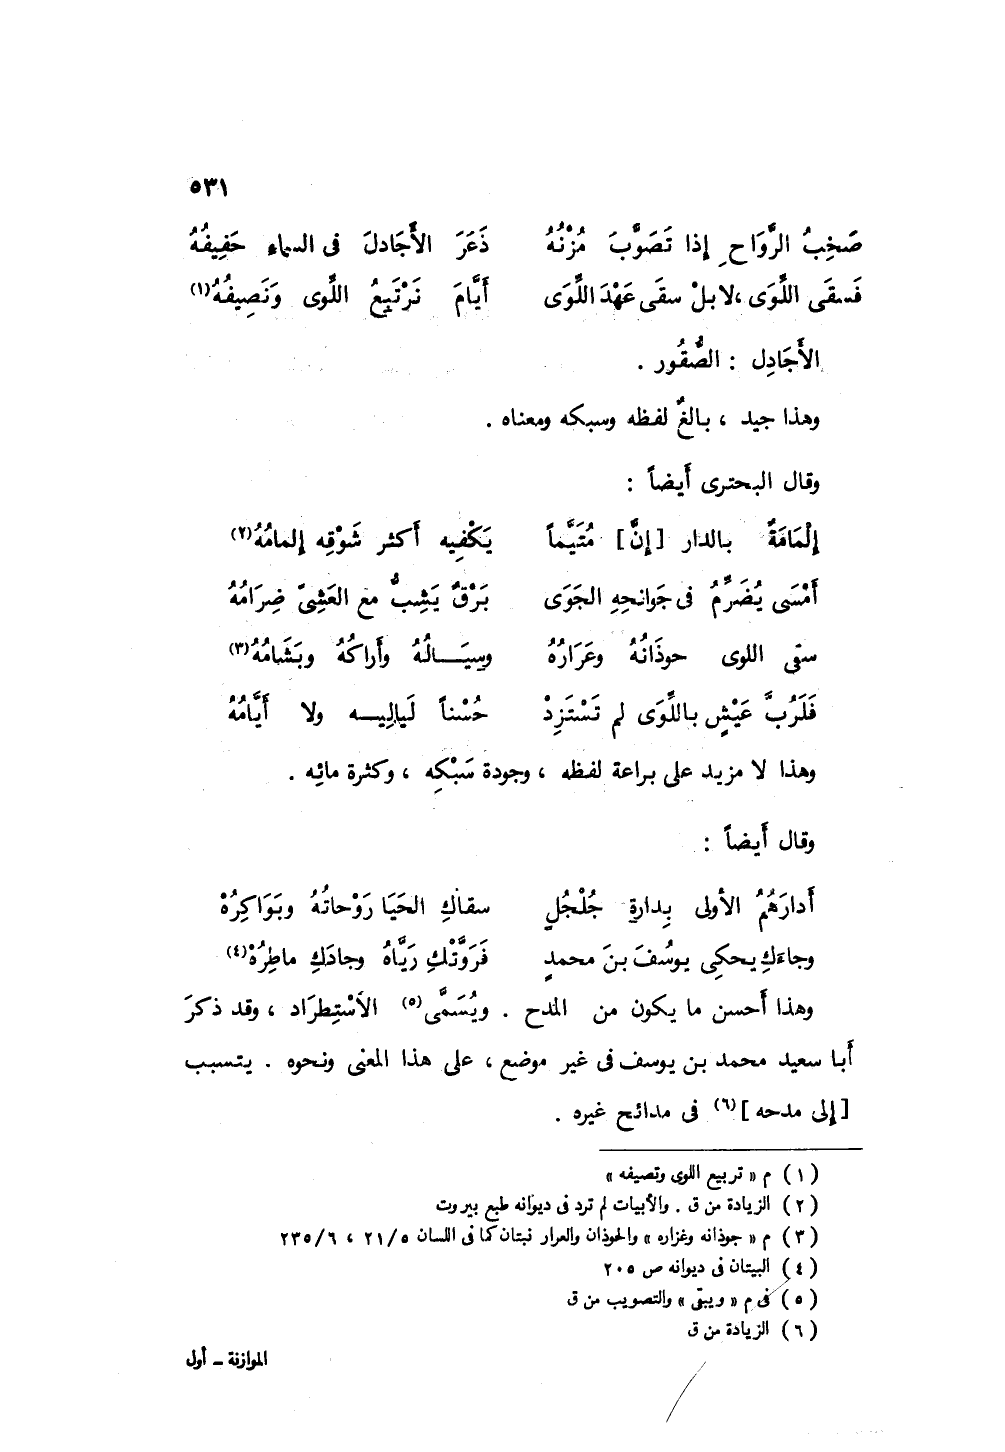 ٥٣١
صَخِبُ الرَّوَاحِ إذا تَصَوَّبَ مُزْنُهُ ذَعَرَ الأَجَادلَ فى السماء حَفِيفُهُ
فَسقَى اللَّوَى ،لا بلْ سقَى عَهْدَ اللَّوَى أَيَّامَ نَرْتَبِعُ اللَّوى وَنَصِيفُهُ(١)
الأَجَادِل : الصُّقُور .
وهذا جيد ، بالغٌ لفظه وسبكه ومعناه .
وقال البحترى أَيضاً :
إلْمَامَةٌ بالدار [إنَّ] مُتَيَّماً يَكْفِيه أَكثر شَوْقِه إلمامُهُ(٢)
أَمْسَى يُضَرِّمُ فى جَوانحِهِ الجَوَى بَرْقٌ يَشِبُّ مع العَشِىِّ ضِرَامُهُ
سقى اللوى حوذَانُهُ وعَرَارُهُ وسِيَــالُهُ وأَراكُهُ وبَشَامُهُ(٣)
فَلَرُبَّ عَيْشٍ باللَّوَى لم تَسْتَزِدْ حُسْناً لَيالِيــه ولا أَيَّامُهُ
وهذا لا مزيد على براعة لفظه ، وجودة سَبْكِه ، وكثرة مائِه .
وقال أَيضاً :
أَدارَهُمُ الأولى بِدارةِ جُلْجُلٍ سقاكِ الحَيَا رَوْحاتُهُ وبَوَاكِرُهْ
وجاءَكِ يحكِى يوسُفَ بنَ محمدٍ فَرَوَّتْكِ رَيَّاهُ وجادَكِ ماطِرُهْ(٤)
وهذا أَحسن ما يكون من المدح . ويُسَمَّى(٥) الاسْتِطرَاد ، وقد ذكرَ
أَبا سعيد محمد بن يوسف فى غير موضع ، على هذا المعنى ونحوه . يتسبب
[إلى مدحه](٦) فى مدائح غيره .
(١) م « تربيع اللوى وتصيفه »
(٢) الزيادة من ق . والأبيات لم ترد فى ديوانه طبع بيروت
(٣) م « جوذانه وغزاره » والحوذان والعرار نبتان كما فى اللسان ٢١/٥ ، ٢٣٥/٦
(٤) البيتان فى ديوانه ص ٢٠٥
(٥) فى م « ويبقى » والتصويب من ق
(٦) الزيادة من ق
الموازنة ــ أول